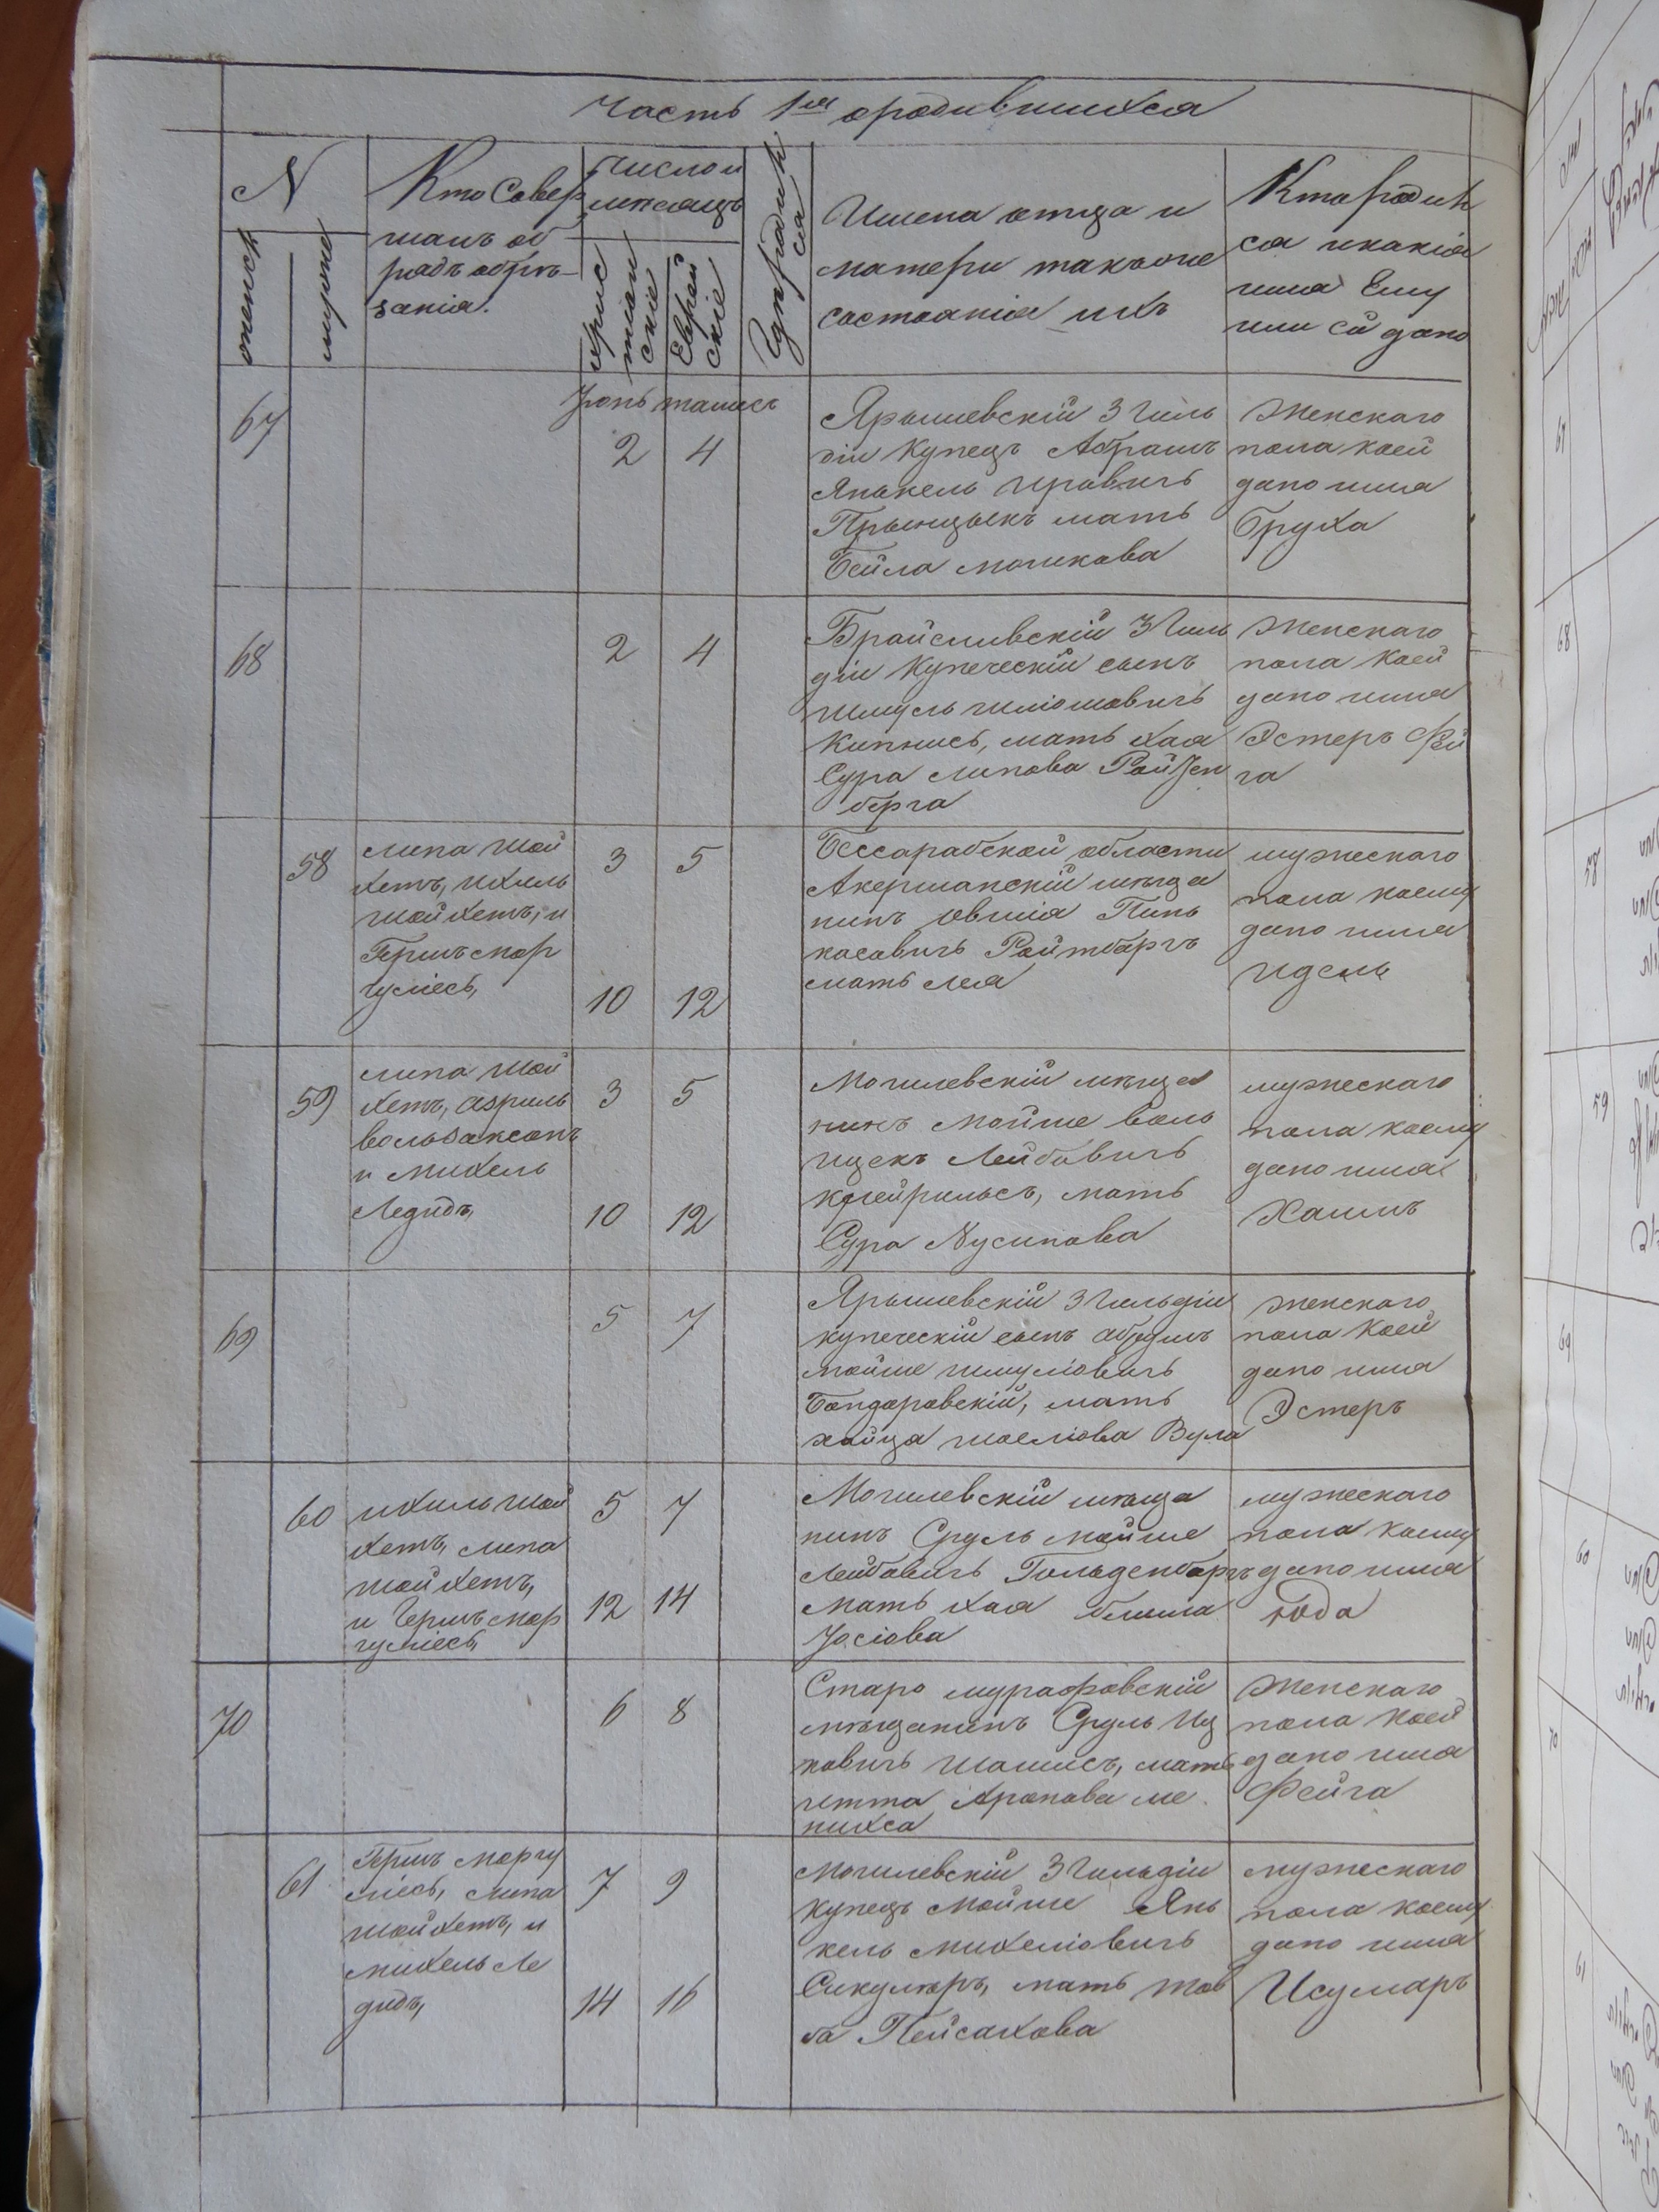 Часть 1ая ородившихся
N
женск
мужс
Кто Совер
шалъ об
рядъ обрѣ-
занія.
Число и
мѣсяцъ
Христіан
скіе
Еврей
скіе
Гдѣ родил
ся
Имена отца и
матери такъже
состоянія ихъ
Кто родил
ся и какія
имя Ему
или ей дано
Іюнь тамисъ
67
2 4
Ярышевскій 3 Гиль
діи Купецъ Абрамъ
Янькель
мать
Бейла Мошкова
Женскаго
пола коей
дано имя
Бруха
68
2 4
3 Гиль
діи Купеческій сынъ
Шмуль Шліомовичъ
Кипнисъ, мать Хая
Сура Липова Ройзен
берга
Женскаго
пола коей
дано имя
Эстеръ Фей
га
58
Липа Шой
хетъ, Ихиль
Шойхетъ, и
Гершъ Мар
гуліесъ,
3 5
10 12
Бессарабской области
Акерманскій мѣща
нинъ Овшія Пинь
касовичъ Ройтбаргъ
мать Лея
мужескаго
пола коему
дано имя
Идель
59
Липа Шой
хетъ, Азриль
Вользаксонъ
и Михель
Ледидъ,
3 5
10 12
Могилевскій мѣща
нинъ Мойше Воль
Ицекъ Лейбовичъ
мать
Сура Нусинова
мужескаго
пола коему
дано имя
Хаимъ
69
5 7
Ярышевскій 3 Гильдіи
купеческій сынъ
Мойше Шмуліовичъ
Бондаровскій, мать
Хайца Шоеліова Вула
женскаго
пола коей
дано имя
Эстеръ
60
Ихиль Шой
хетъ, Липа
Шойхетъ,
и Гершъ Мар
гуліесъ,
5 7
12 14
Могилевскій мѣща
нинъ Сруль Мойше
Лейбовичъ Гольденбаргъ
Мать Хая Блима
Іосіова
мужескаго
пола коему
дано имя
Юда
70
6 8
Старо мурафовскій
мѣщанинъ Сруль Иц
ковичъ Шамисъ, мать
Итта Аронова Ме
нихса
Женскаго
пола коей
дано имя
Фейга
61
Гершъ Маргу
ліесъ, Липа
Шойхетъ, и
Михель Ле
дидъ,
7 9
14 16
Могилевскій 3 Гильдіи
купецъ Мойше Янь
кель Михеліовичъ
Секуляръ, мать Тов
ба Пейсахова
мужескаго
пола коему
дано имя
Исумаръ